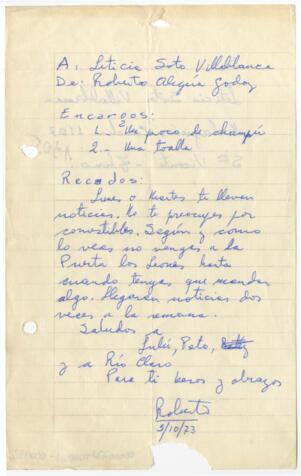 A: Leticia Soto Villablanca
De: Roberto Alegría Godoy
Encargos:
1.- Un poco de champú
2.- Una toalla
Recados:
Lunes o Martes te lleven
noticias. No te preocupes por
comestibles. Según y como
lo veas no vengas a la
Puerta los Leones hasta
cuando tengas que mandar
algo. Llegarán noticias dos
veces a la semana.
Saludos a
Lulú, Peto,
y a Río Claro
Para ti besos y abrazos
Roberto
5/10/73